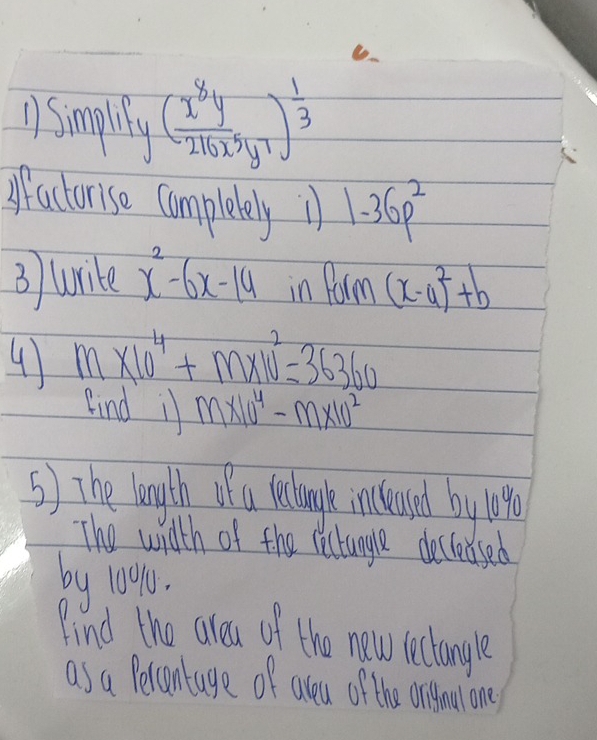 1) Simplify (x⁸y / 216x⁵y⁷)^(1/3)
2) factorise completely i) 1-36p²
3) Write x²-6x-19 in form (x-a)²+b
4) m×10⁴ + m×10² = 36360
find i) m×10⁴ - m×10²
5) The length of a rectangle increased by 10%
The width of the rectangle decreased
by 10%.
find the area of the new rectangle
as a Percentage of area of the original one.